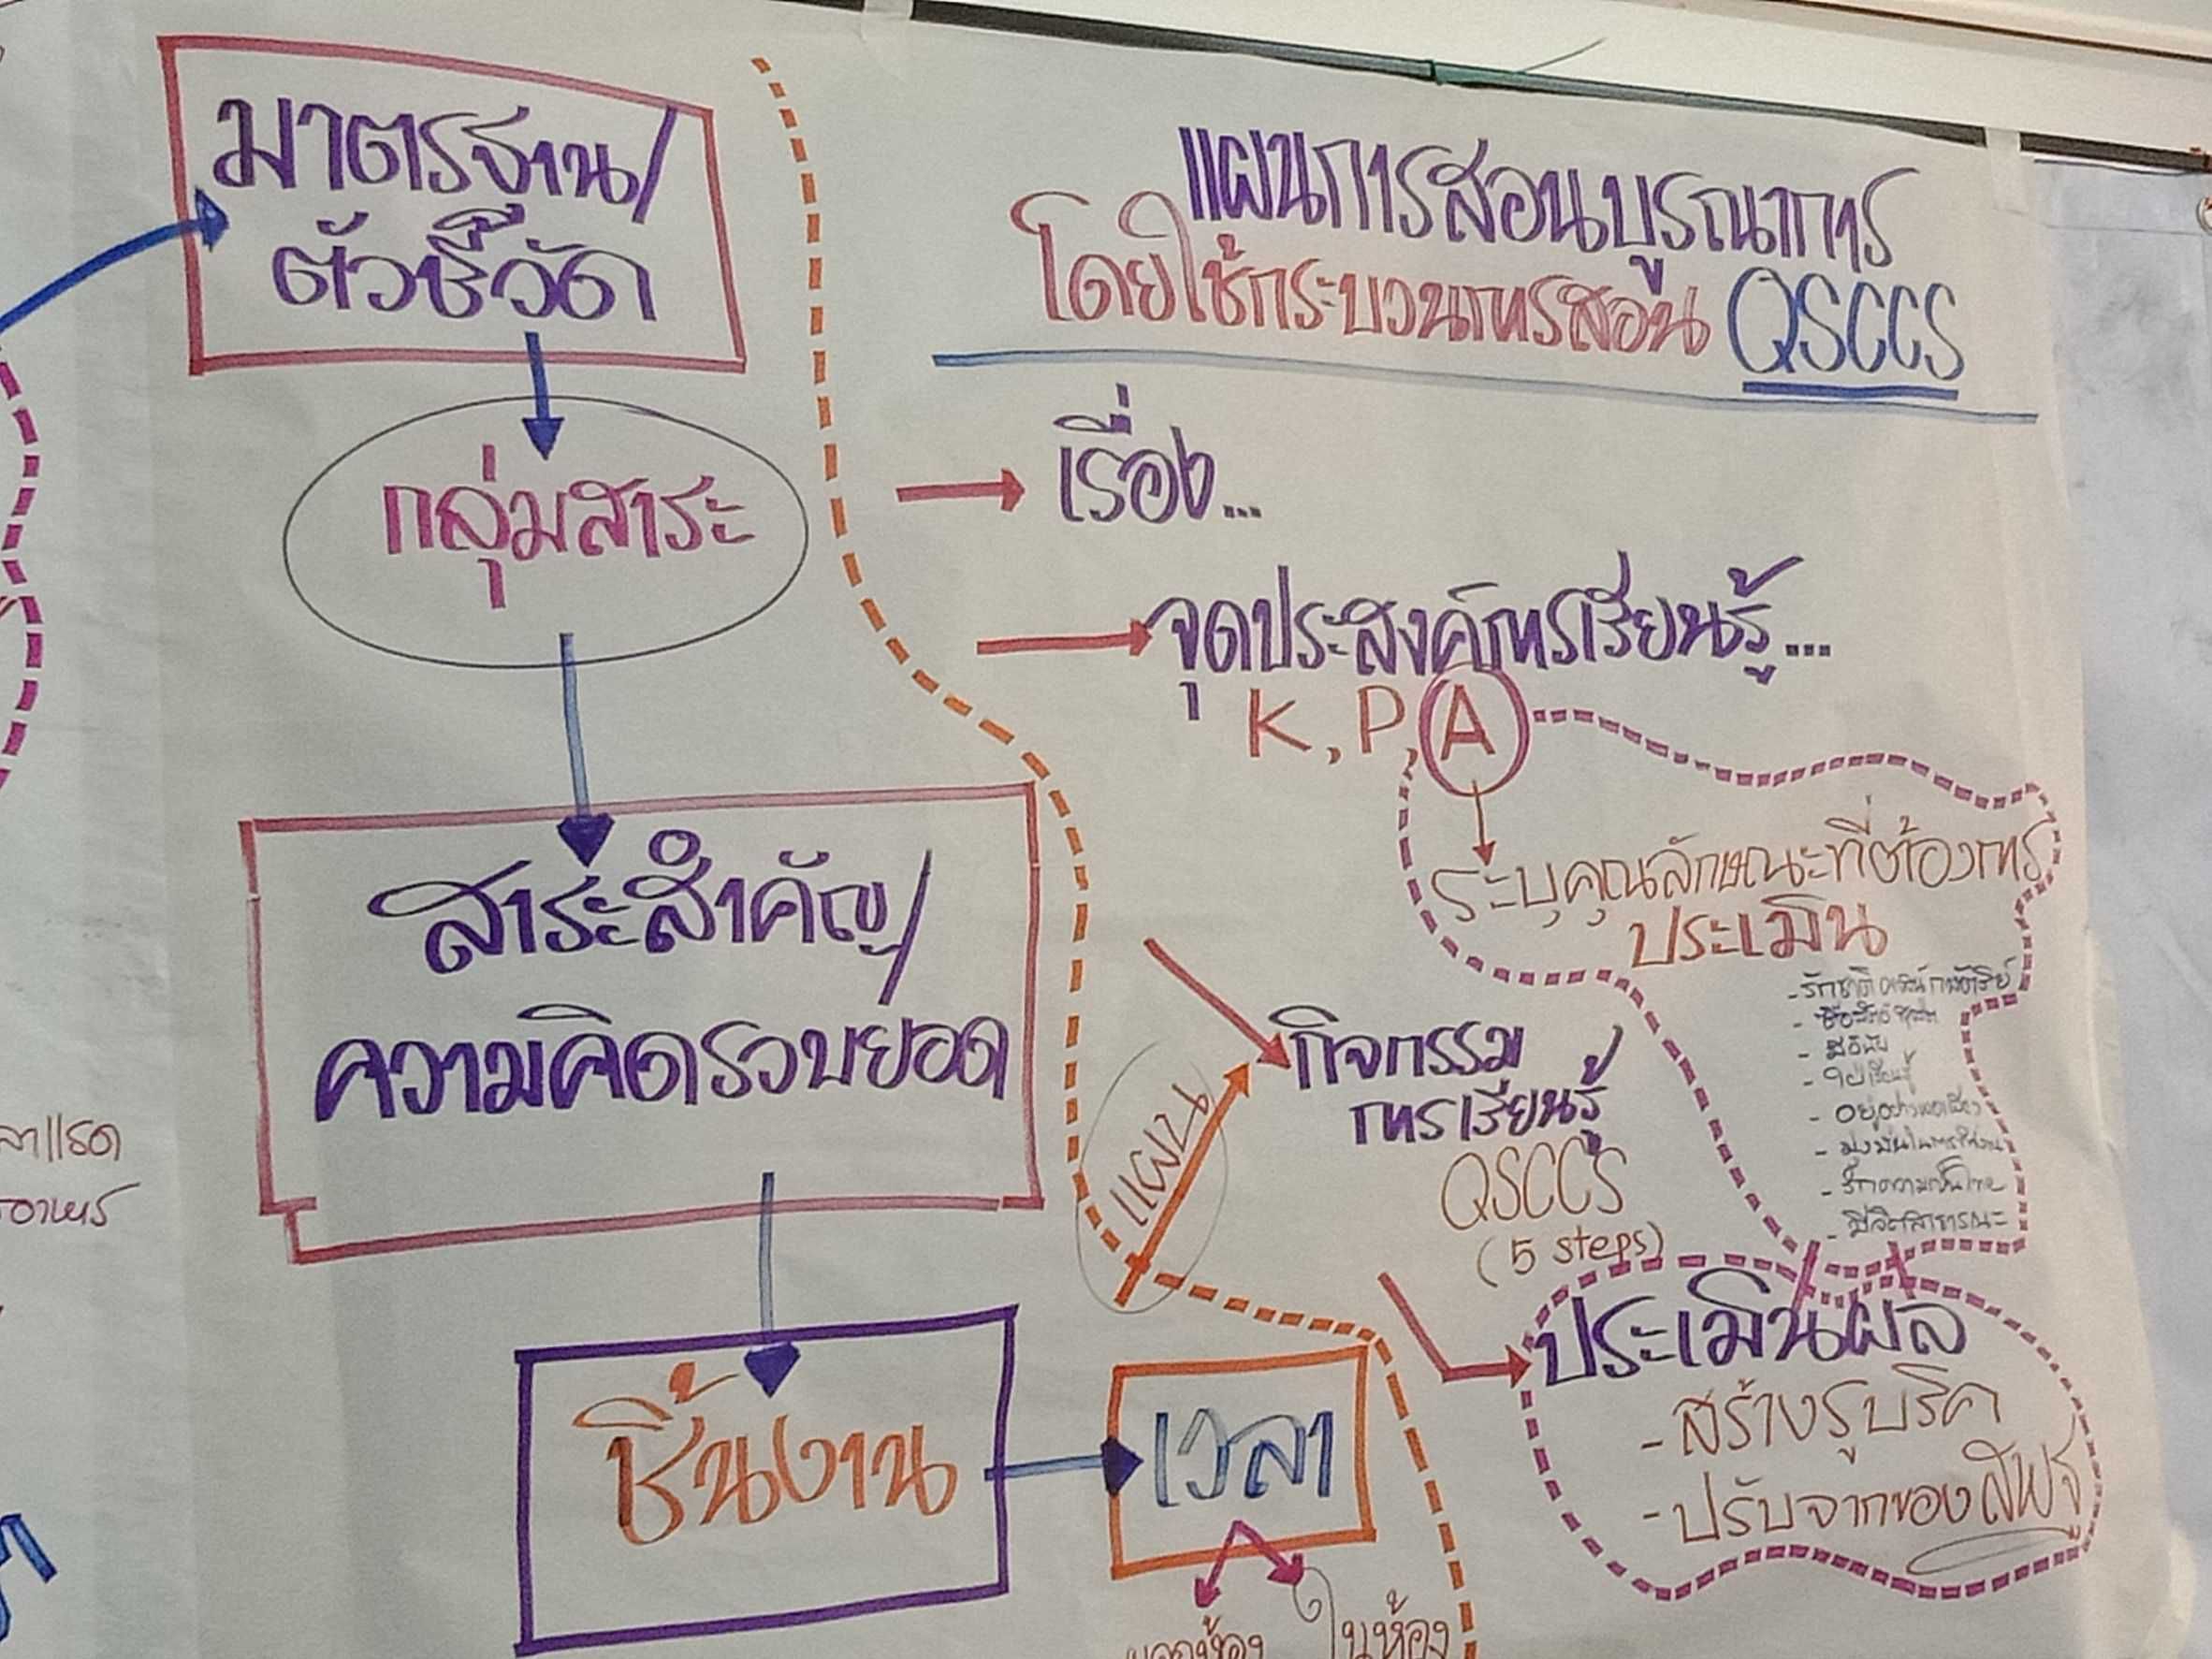 มาตรฐาน/
ตัวชี้วัด
กลุ่มสาระ
สาระสำคัญ/
ความคิดรวบยอด
ชิ้นงาน
เวลา
นอกห้อง
ในห้อง
แผนการสอนบูรณาการ
โดยใช้กระบวนการสอน QSCCS
เรื่อง...
จุดประสงค์การเรียนรู้...
K, P, A
ระบุคุณลักษณะที่ต้องการ
ประเมิน
- รักชาติ ศาสน์ กษัตริย์
- ซื่อสัตย์ สุจริต
- มีวินัย
- ใฝ่เรียนรู้
- อยู่อย่างพอเพียง
- มุ่งมั่นในการทำงาน
- รักความเป็นไทย
- มีจิตสาธารณะ
กิจกรรม
การเรียนรู้
QSCCS
(5 steps)
ประเมินผล
- สร้างรูบริค
- ปรับจากของ สพฐ